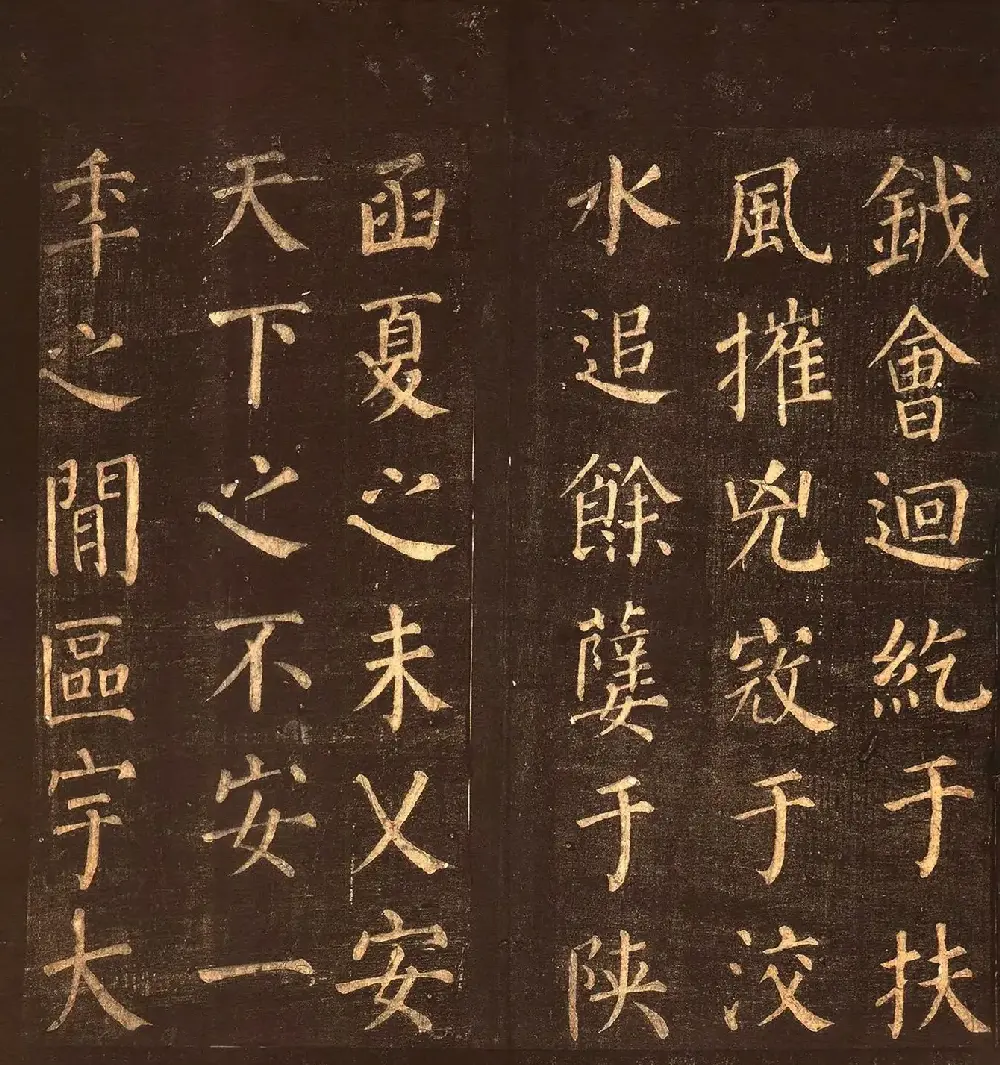 鉞會迴紇于扶
風摧兇寇于洨
水追餘孽于陕
函夏之未乂安
天下之不安一
秊之閒區宇大